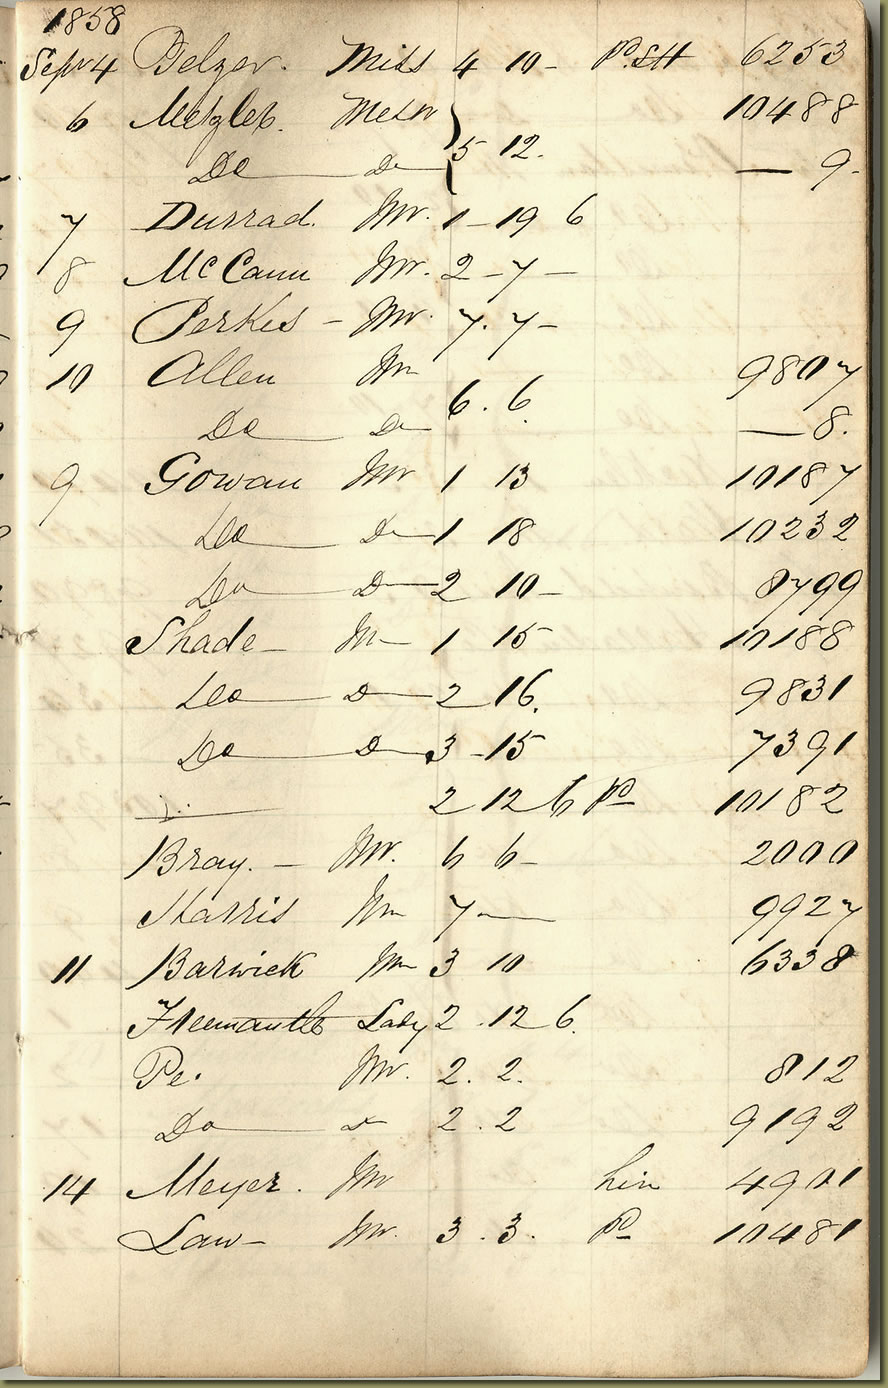 1858
Sept 4 Belzer. Miss 4 10 - 6253
6 Metzler. Messrs 10488
Do Do 5 12. — 9.
7 Durrad. Mr. 1 - 19 6
8 McCann Mr. 2 - 7 -
9 Perkes - Mr. 7. 7 -
10 Allen Mr 9807
Do Do 6. 6. — 8.
9 Gowan Mr 1 13 10187
Do Do 1 18 10232
Do Do 2 10 - 8799
Shade - Mr 1 15 10188
Do Do 2 16. 9831
Do Do 3 - 15 7391
2 12 6 Pd 10182
Bray. - Mr. 6 6 - 2000
Harris Mr 7 — 9927
11 Barwick Mr 3 10 6338
Freemantle Lady 2. 12 6.
Pe. Mr. 2. 2. 812
Do Do 2. 2 9192
14 Meyer. Mr 4901
Law - Mr. 3. 3. Pd 10481